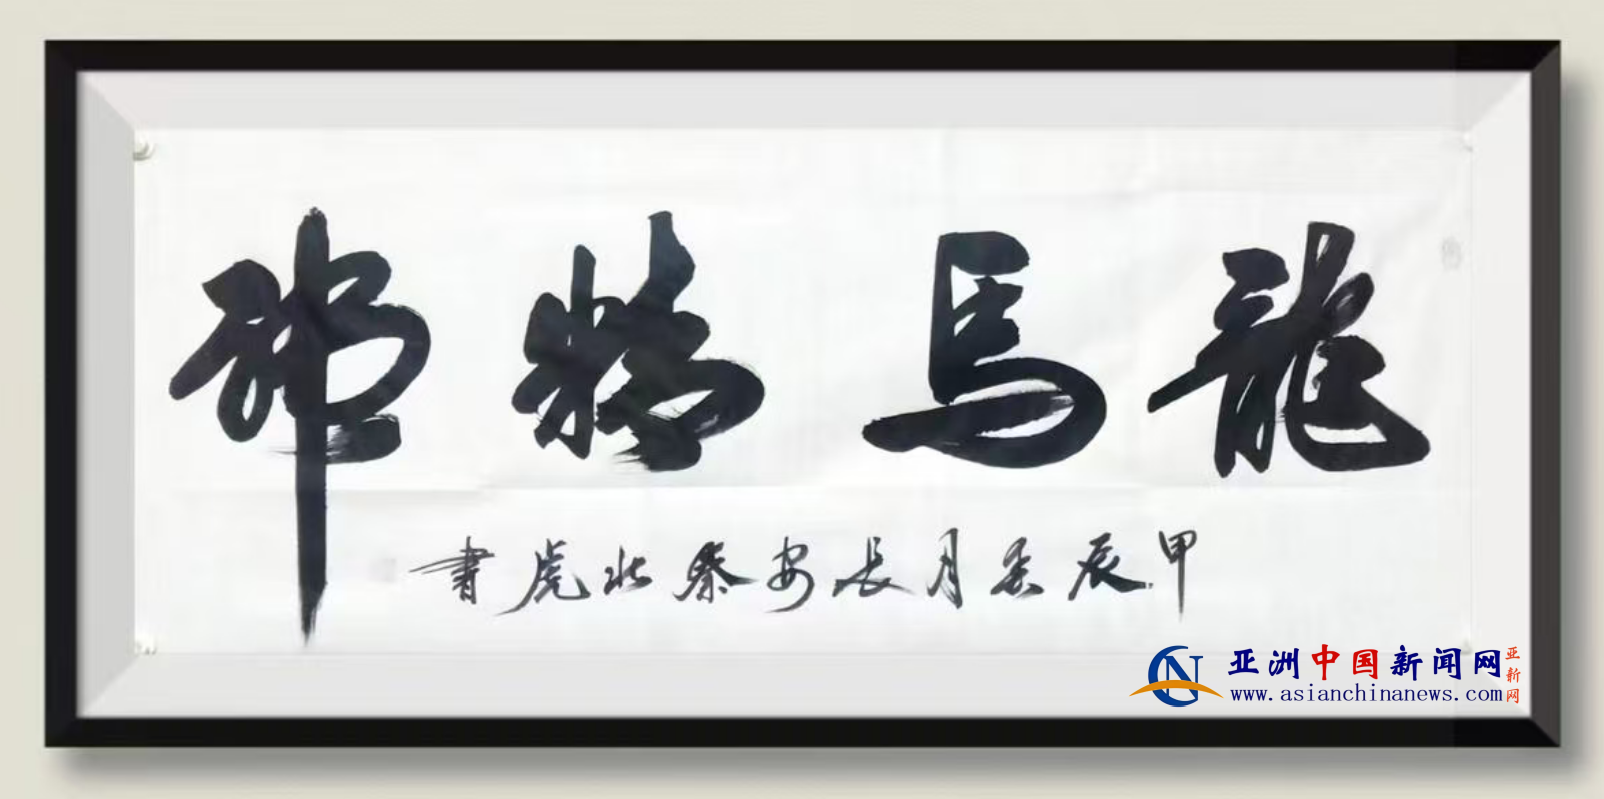 龍馬精神
甲辰春月長安秦北虎書
亚洲中国新闻网
亚新网
www.asianchinanews.com